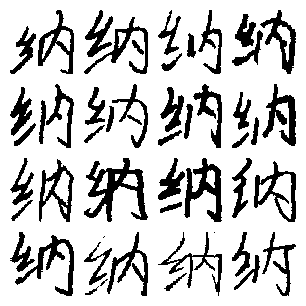 纳纳纳纳
纳纳纳纳
纳纳纳纳
纳纳纳纳